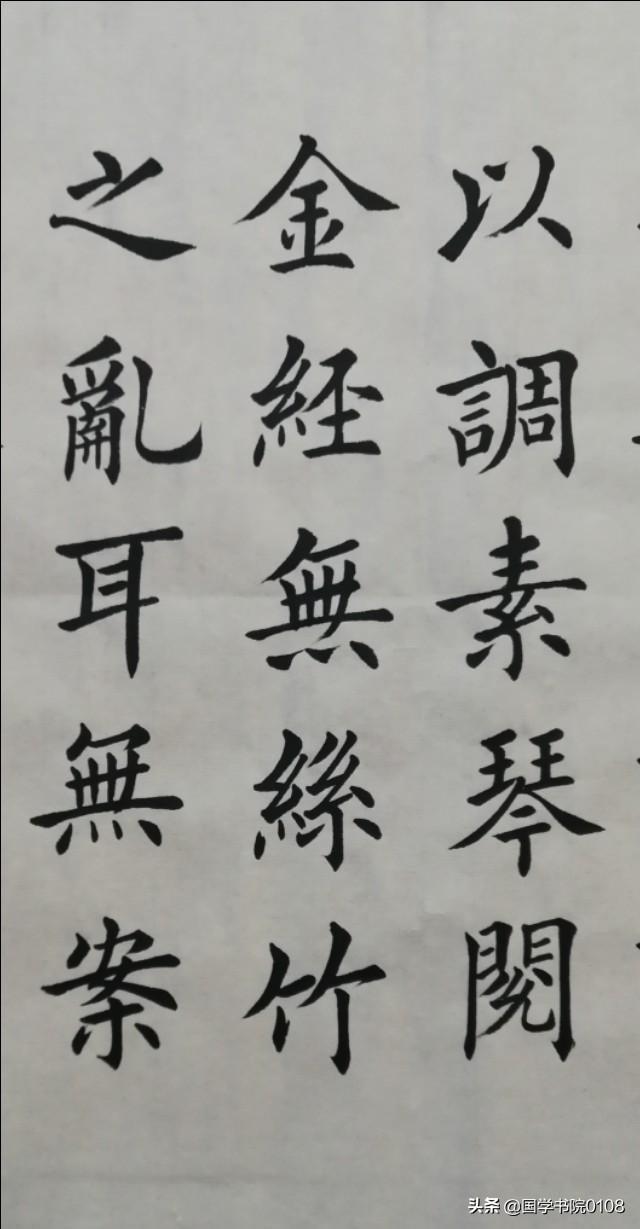 以調素琴閱
金經無絲竹
之亂耳無案
头条 @国学书院0108